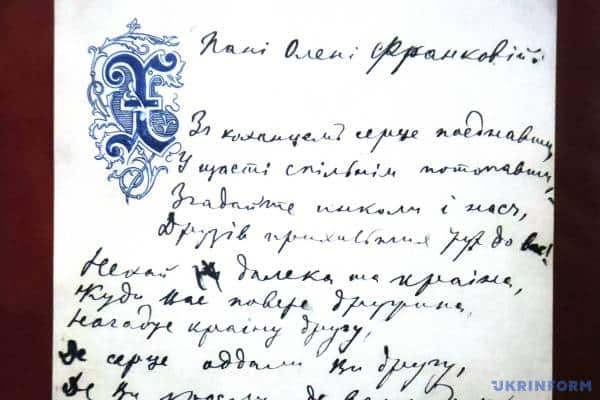 Пані Олені Франковій.
З коханцемъ серце поєднавши,
У щасті спільнім потопавши,
Згадайте инколи і насъ,
Друзів прихильних тут до вас!
Нехай далека та країна,
Куди вас повезе дружина,
Нагадує країну другу,
Де серце оддали Ви другу,
Де Ви
UKRINFORM